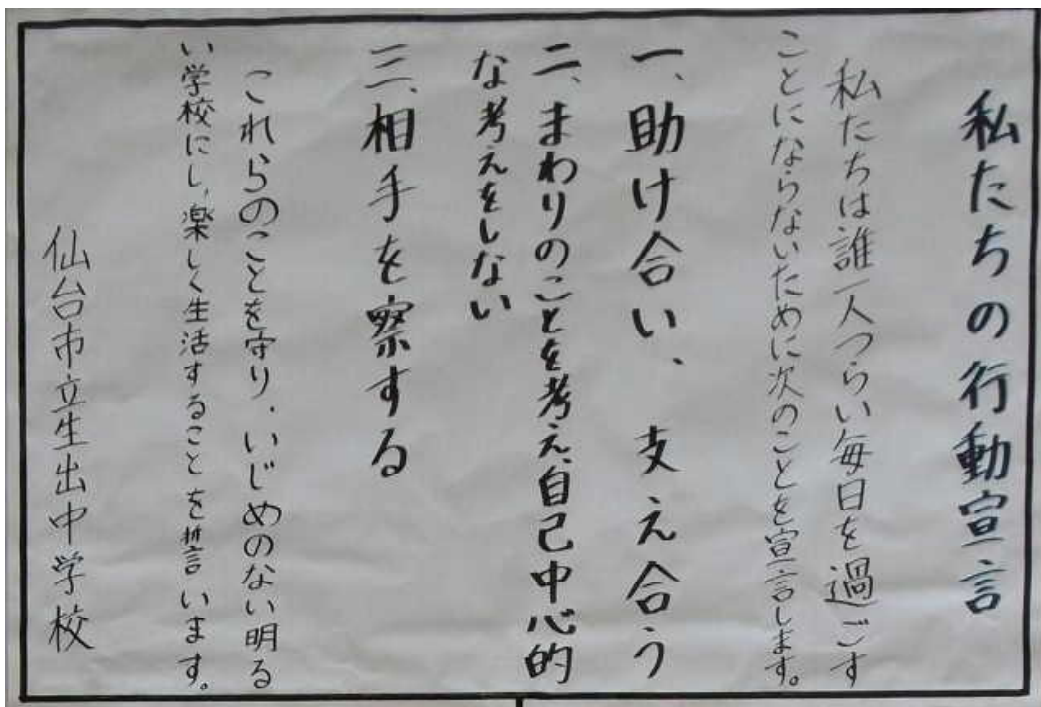 私たちの行動宣言
私たちは誰一人つらい毎日を過ごす
ことにならないために次のことを宣言します。
一、助け合い、支え合う
二、まわりのことを考え、自己中心的
な考えをしない
三、相手を察する
これらのことを守り、いじめのない明る
い学校にし、楽しく生活することを誓います。
仙台市立生出中学校